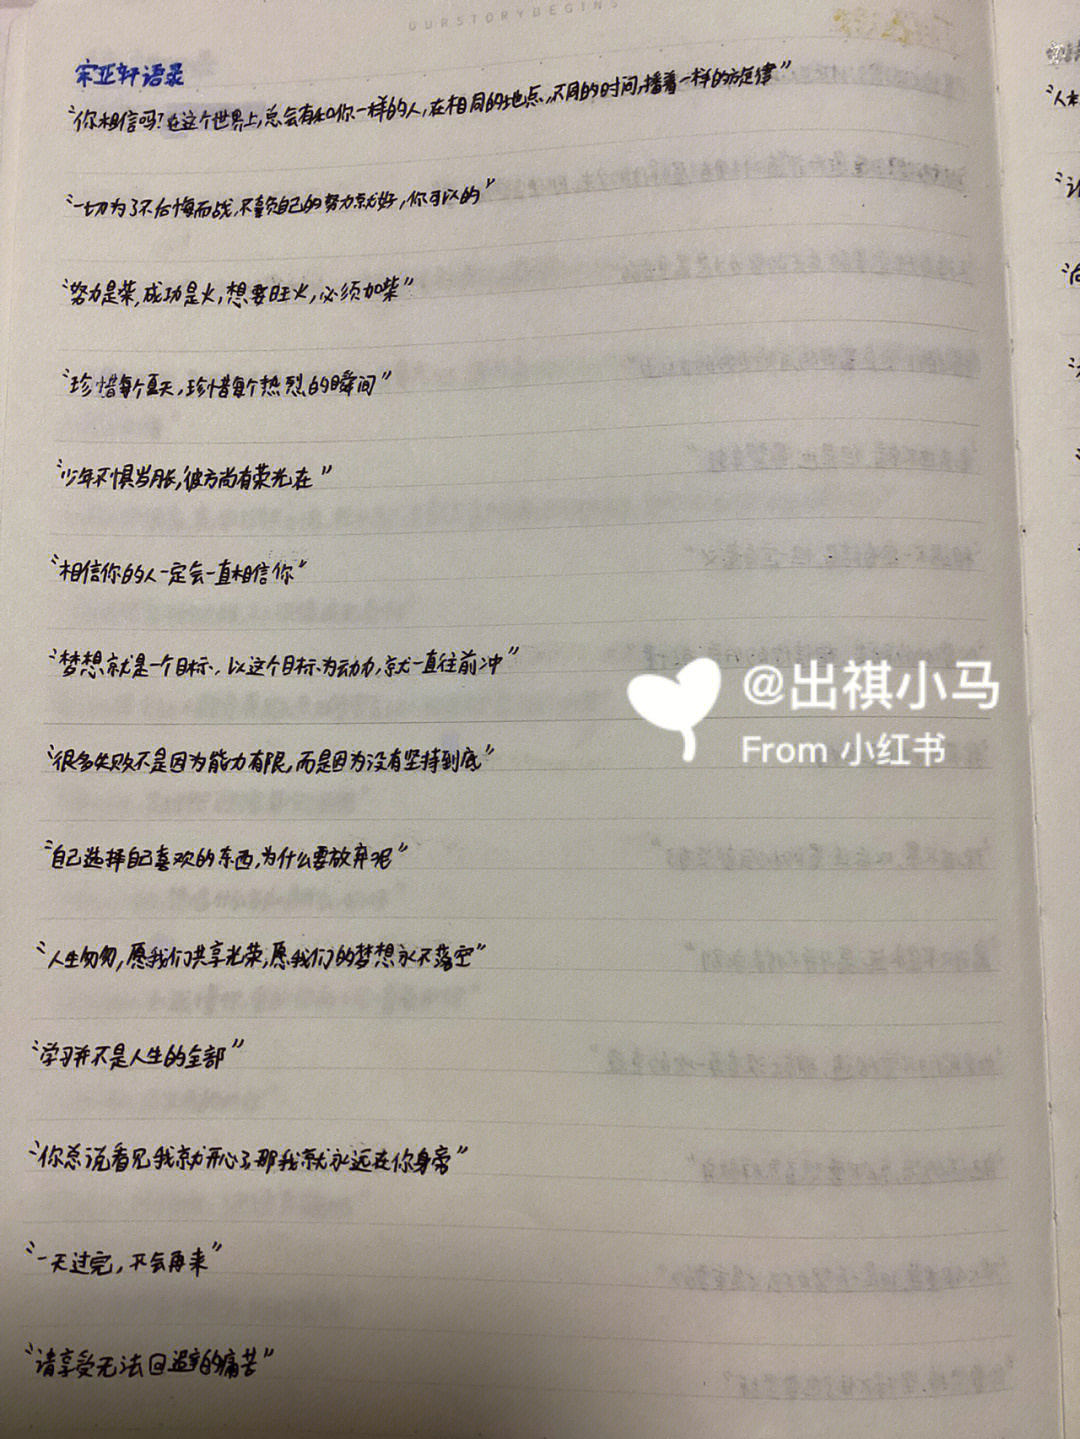 OURSTORYBEGINS
宋亚轩语录
"你相信吗?在这个世界上,总会有和你一样的人,在相同的地点,不同的时间,播着一样的旋律"
"一切为了不后悔而战,不辜负自己的努力就好,你可以的"
"努力是柴,成功是火,想要旺火,必须加柴"
"珍惜每个夏天,珍惜每个热烈的瞬间"
"少年不惧岁月长,彼方尚有荣光在"
"相信你的人一定会一直相信你"
"梦想就是一个目标,以这个目标为动力,就一直往前冲"
"很多失败不是因为能力有限,而是因为没有坚持到底"
"自己选择自己喜欢的东西,为什么要放弃呢"
"人生匆匆,愿我们共享光荣,愿我们的梦想永不落空"
"学习并不是人生的全部"
"你总说看见我就开心了那我就永远在你身旁"
"一天过完,不会再来"
"请享受无法回避的痛苦"
@出祺小马
From 小红书